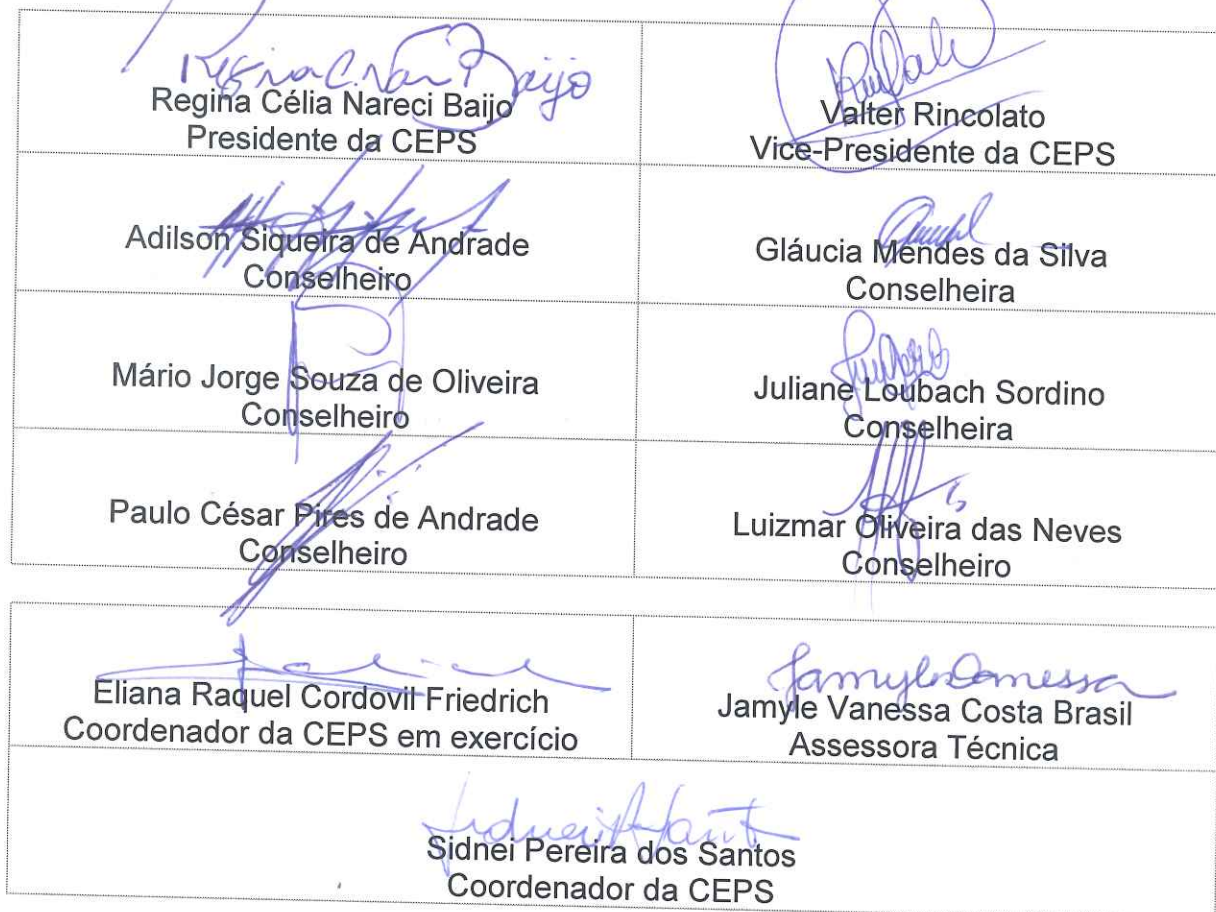 Regina Célia Nareci Baijo
Presidente da CEPS
Valter Rincolato
Vice-Presidente da CEPS
Adilson Siqueira de Andrade
Conselheiro
Gláucia Mendes da Silva
Conselheira
Mário Jorge Souza de Oliveira
Conselheiro
Juliane Loubach Sordino
Conselheira
Paulo César Pires de Andrade
Conselheiro
Luizmar Oliveira das Neves
Conselheiro
Eliana Raquel Cordovil Friedrich
Coordenador da CEPS em exercício
Jamyle Vanessa Costa Brasil
Assessora Técnica
Sidnei Pereira dos Santos
Coordenador da CEPS